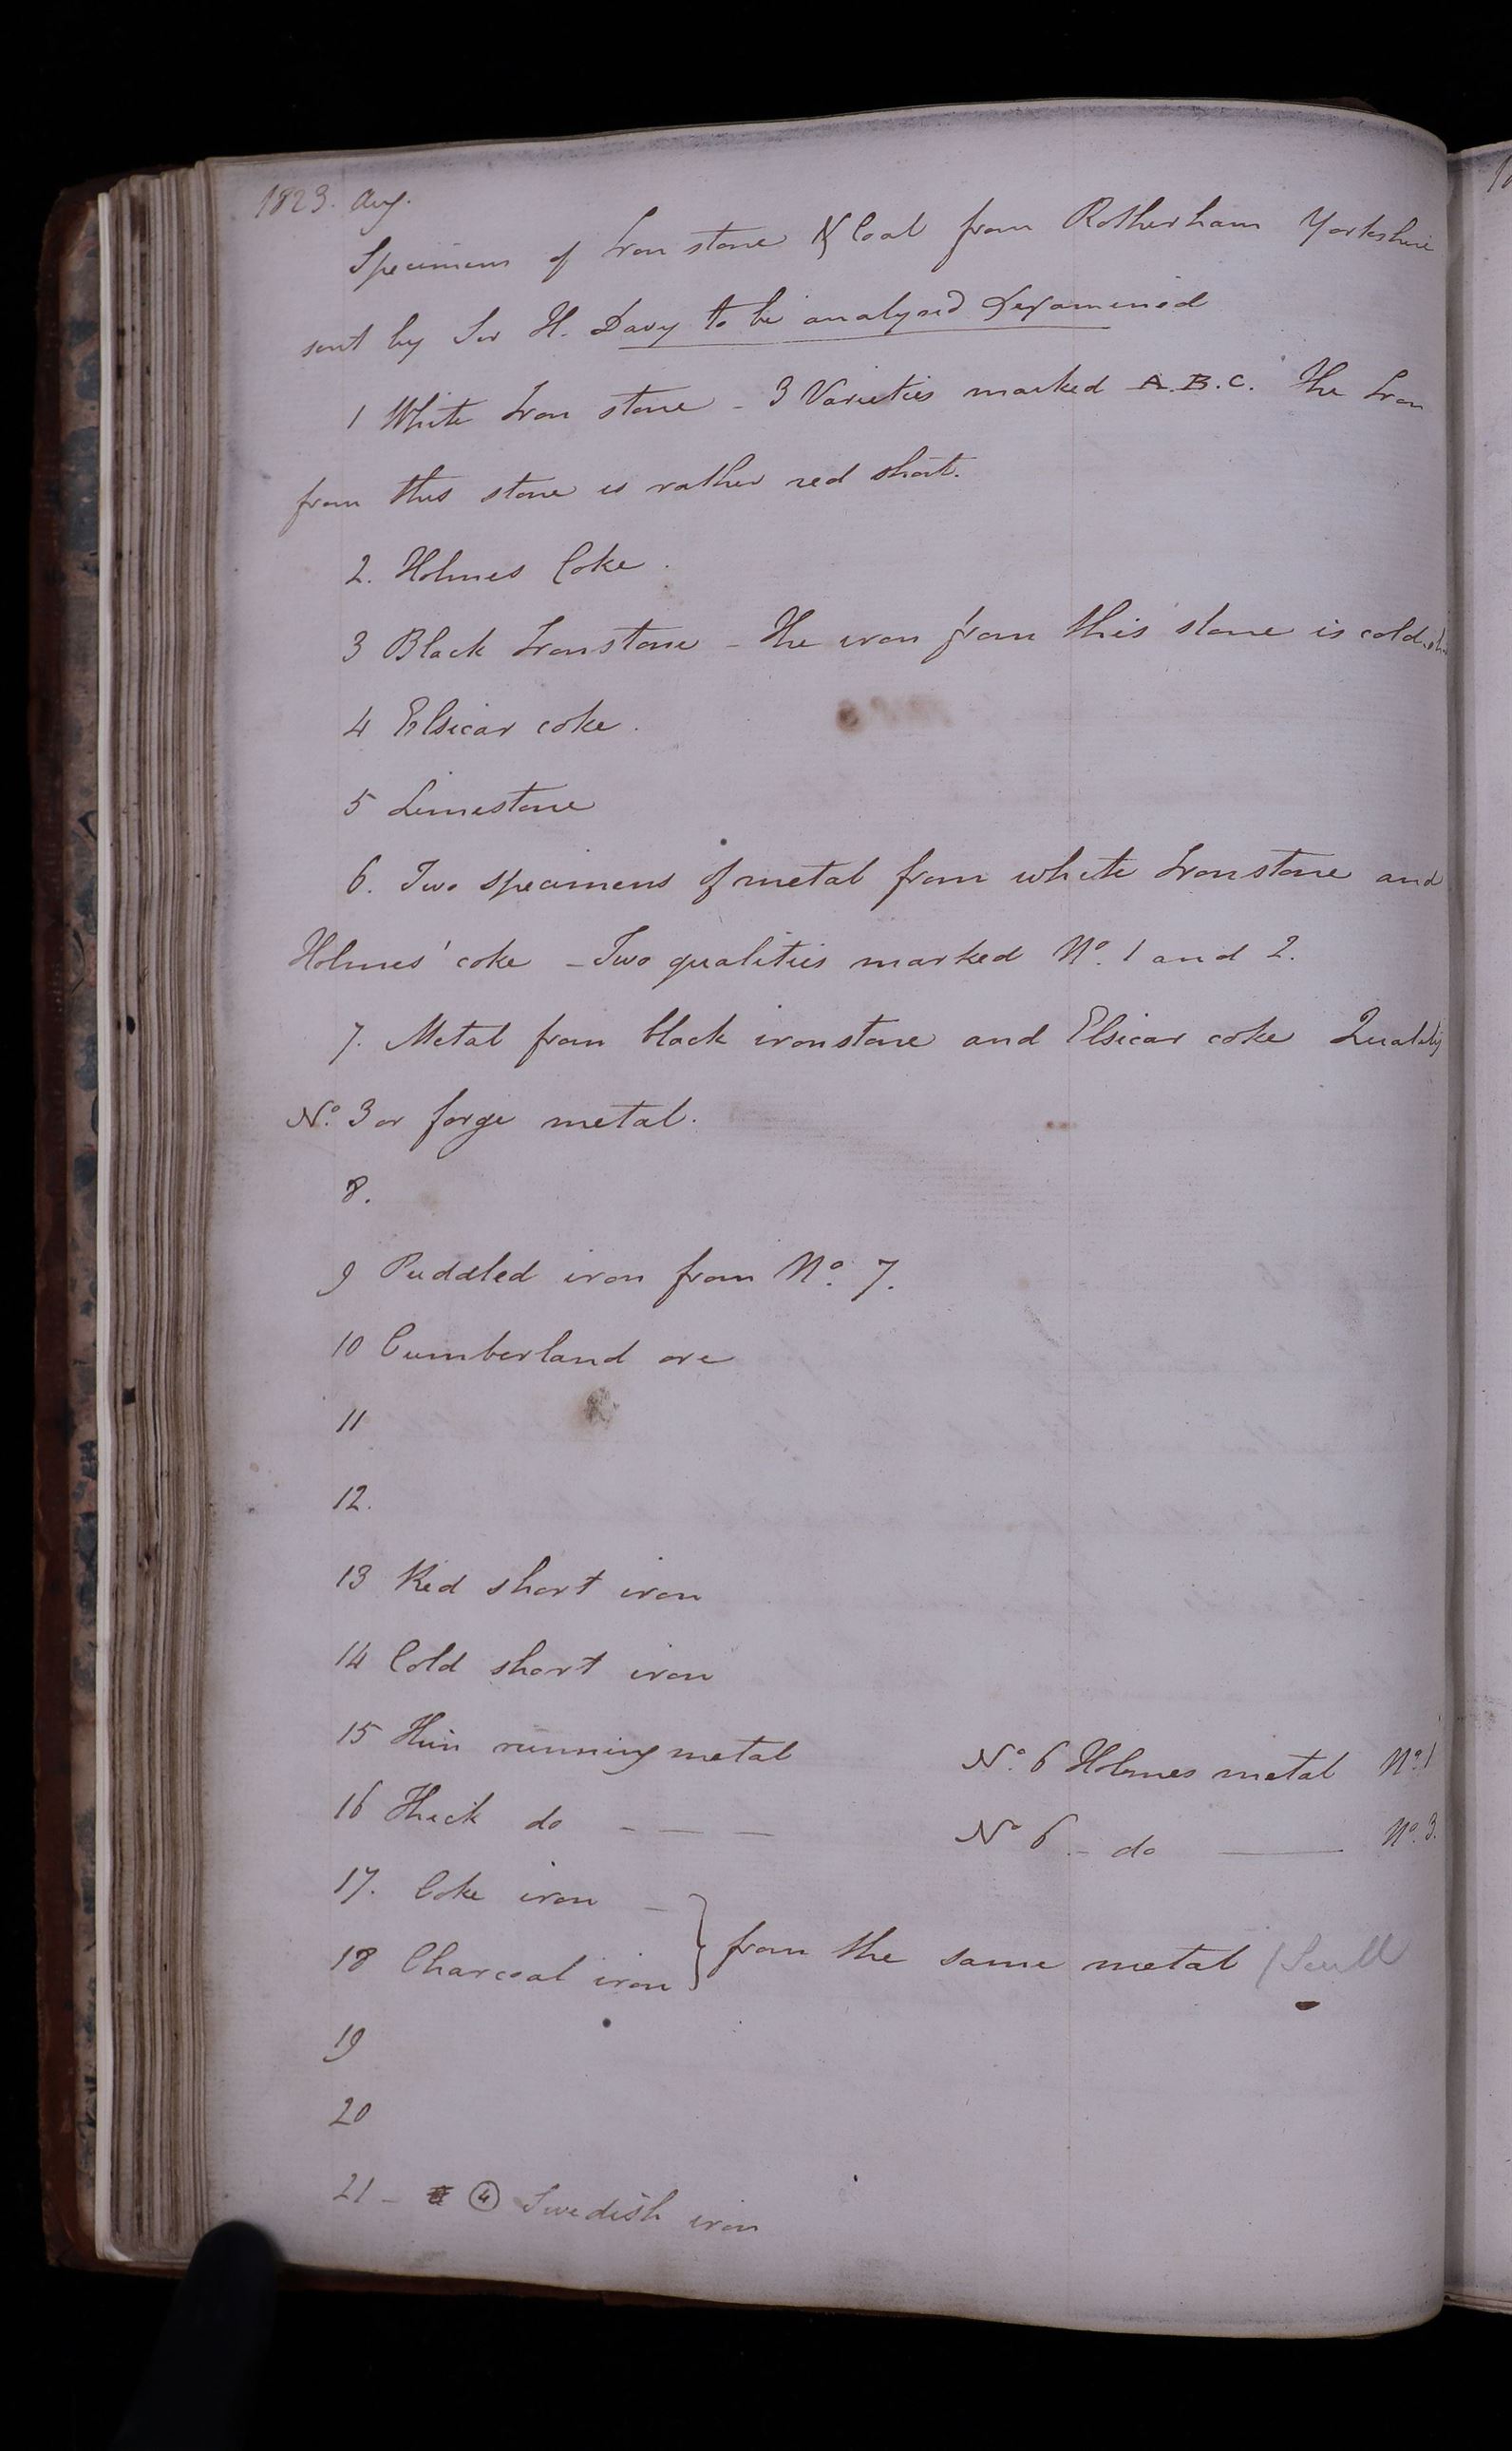 1823. Aug.
Specimens of Iron stone & Coal from Rotherham Yorkshire
sent by Sir H. Davy to be analysed & examined
1 White Iron stone - 3 Varieties marked A. B. C. The Iron
from this stone is rather red short.
2. Holmes Coke.
3 Black Ironstone - The iron from this stone is cold
4 Elsicar coke.
5 Limestone
6. Two specimens of metal from white Ironstone and
Holmes' coke - Two qualities marked No. 1 and 2.
7. Metal from black ironstone and Elsicar coke Quality
No. 3 or forge metal.
8.
9 Puddled iron from No. 7.
10 Cumberland ore
11
12.
13 Red short iron
14 Cold short iron
15 Thin running metal No. 6 Holmes metal No. 1
16 Thick do - — — No 6 - do — No. 3.
17. Coke iron -
18 Charcoal iron } from the same metal
19
20
21 - ④ Swedish iron